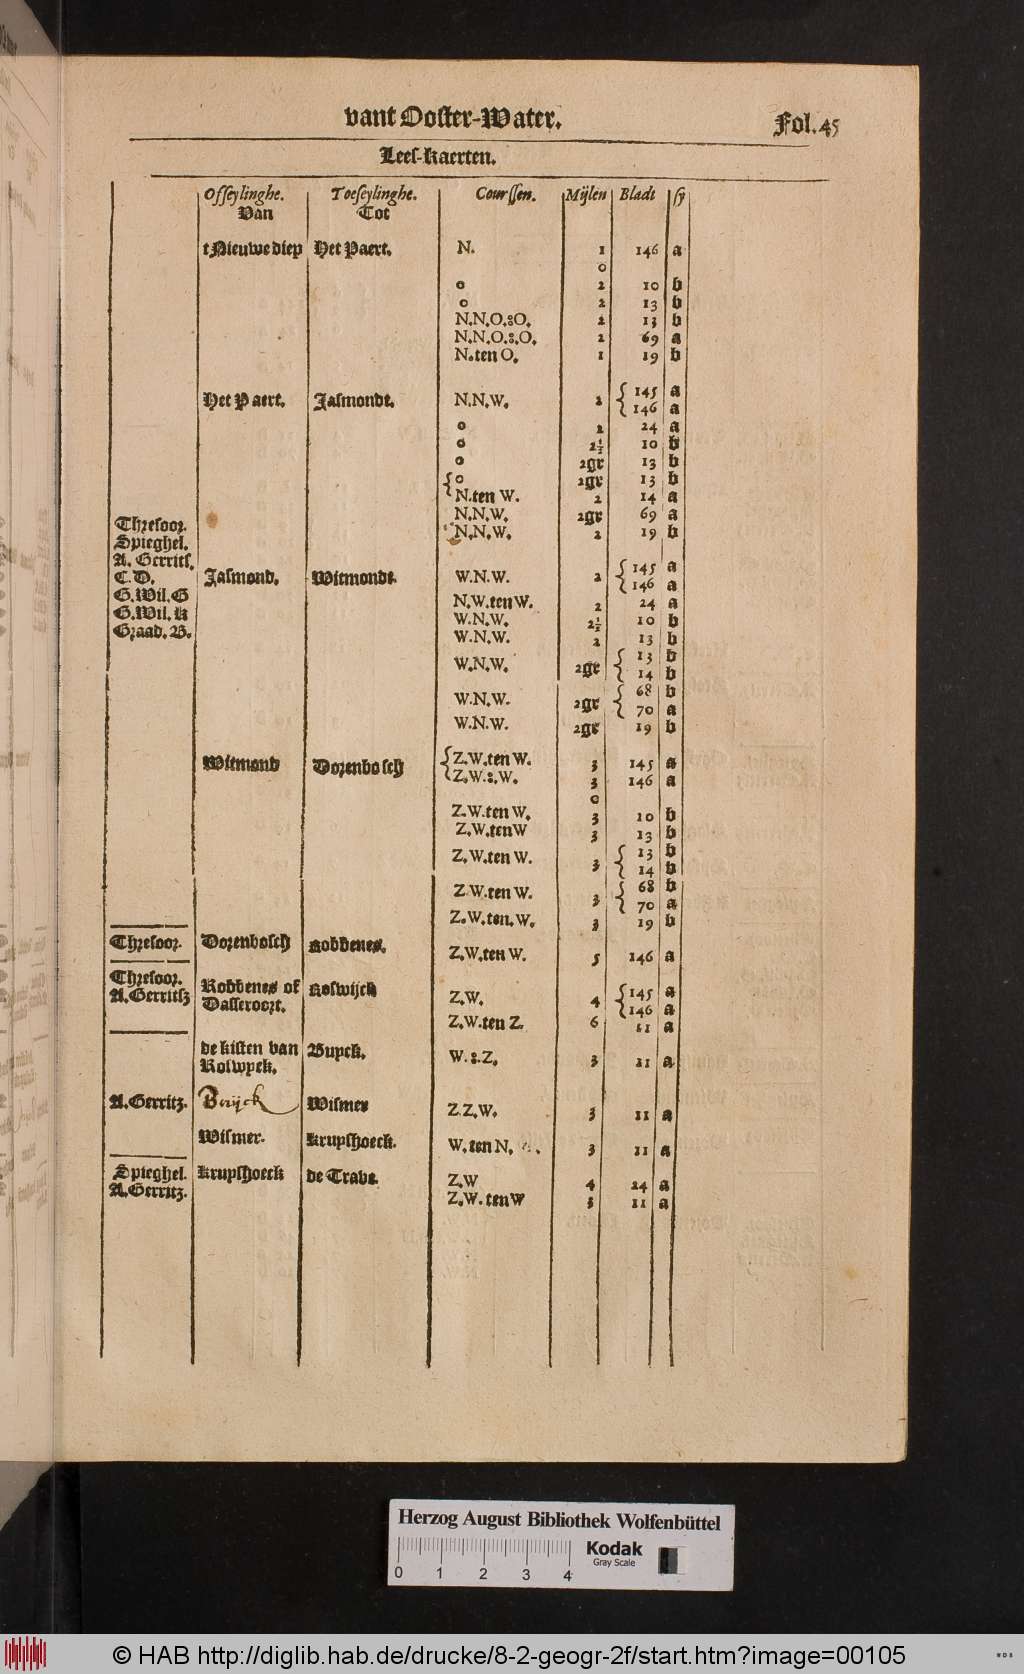 vant Ooster-Water. Fol. 45
Lees-kaerten.
Offeylinghe. Toeseylinghe. Courssen. Mijlen Bladt sy
Van Tot
t Nieuwe diep Het Paert. N. 1 146 a
0
o 2 10 b
o 2 13 b
N.N.O.:O. 2 13 b
N.N.O.:.O. 2 69 a
N.ten O. 1 19 b
Het Paert. Jasmondt. N.N.W. 2 { 145 a
{ 146 a
o 2 24 a
o 2½ 10 b
o 2gr 13 b
{ o 2gr 13 b
N.ten W. 2 14 a
Thresoor. N.N.W. 2gr 69 a
Spieghel. N.N.W. 2 19 b
A. Gerrits.
C.D. Jasmond. Witmondt. W.N.W. 2 { 145 a
{ 146 a
G.Wil.G N.W.tenW. 2 24 a
G.Wil.K W.N.W. 2½ 10 b
Graad. B. W.N.W. 2 13 b
W.N.W. 2gr { 13 b
{ 14 b
W.N.W. 2gr { 68 b
{ 70 a
W.N.W. 2gr 19 b
Witmond Dorenbosch { Z.W.ten W. 3 145 a
Z.W.:.W. 3 146 a
0
Z.W.ten W. 3 10 b
Z.W.tenW 3 13 b
Z.W.ten W. 3 { 13 b
{ 14 b
Z.W.ten W. 3 { 68 b
{ 70 a
Z.W.ten.W. 3 19 b
Thresoor. Dorenbosch Robbenes. Z.W.ten W. 5 146 a
Thresoor. Robbenes of Roswijck
A.Gerritsz Dasseroort. Z.W. 4 { 145 a
{ 146 a
Z.W.ten Z. 6 11 a
de kisten van Buyck. W.:.Z. 3 11 a
Roswyck.
A.Gerritz. Buijck Wismer Z.Z.W. 3 11 a
Wismer. Kruyshoeck. W.ten N. 3 11 a
Spieghel. Kruyshoeck de Trave. Z.W 4 24 a
A.Gerritz. Z.W.tenW 3 11 a
Herzog August Bibliothek Wolfenbüttel
Kodak
Gray Scale
0 1 2 3 4
© HAB http://diglib.hab.de/drucke/8-2-geogr-2f/start.htm?image=00105